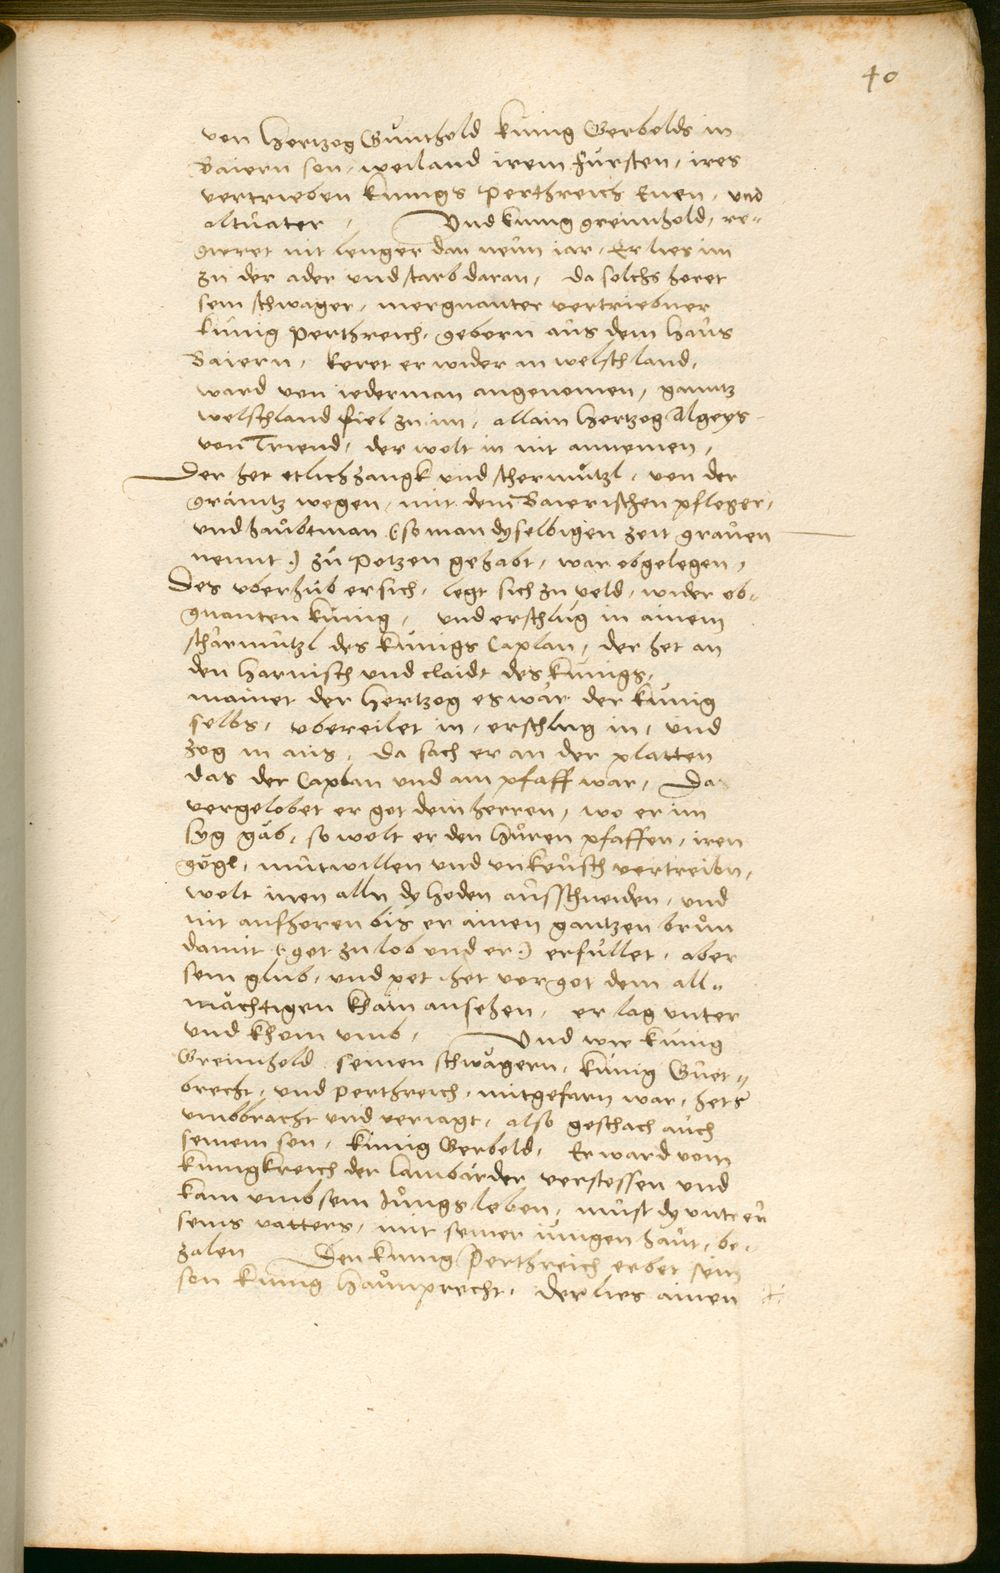 40
von Hertzog Gunthold kunig Gerbolds in
Baiern son, weiland irem Fürsten, ires
vertrieben kunigs Perthreich Enen, vnd
altuater, Vnd kunig Greimhold, re„
gieret nit lenger dan neun iar, Er lies im
zu der ader vnd starb daran, da solchs horet
sein schwager, mergnanter vertriebner
kunig Perthreich, geborn aus dem haus
Baiern, keret er wider in welschland,
ward von iederman angenomen, gantz
welschland fiel zu im, allain Hertzog Algeys
von Triend, der wolt in nit annemen,
Der het etlich zangk vnd schermützl, von der
gränitz wegen, mit dem Baierischen pfleger,
vnd haubtman (so man dyselbigen zeit grauen
nennt:) zu Potzen gehabt, war obgelegen,
Des vberhub er sich, legt sich zu veld, wider ob„
gnanten kunig, vnd erschlug in ainem
schärmützl des kunigs Caplan, der het an
den Harnisch vnd claidt des kunigs,
mainet der Hertzog es wär der kunig
selbs, vbereilet in, erschlug in, vnd
zog in aus, da sach er an der platten
das der Caplan vnd ain pfaff war, Da
vergelobet er got dem herren, wo er im
syg gäb, so wolt er den huren pfaffen, iren
gugl, mutwillen vnd vnkeusch vertreibn,
wolt inen alln dy hoden ausschneiden, vnd
nit aufhoren bis er ainen gantzen brun
damit (:got zu lob vnd er:) erfullet, aber
sein glub, vnd pet het vor got dem all„
mächtigen khain ansehen, er lag vnter
vnd khom vmb, Vnd wie kunig
Greimhold seinen schwägern, kunig Guet„
brecht, vnd Perthreich, mitgefarn war, hets
vmbbracht vnd veriagt, also geschach auch
seinem son, kunig Gerbold, Er ward vom
kunigkreich der Lambarder verstossen vnd
kam vmb sein iungs leben, must dy vntreu
seins vatters, mit seiner iungen haut, be„
zalen Den kunig Perthreich erbet sein
son kunig Haunprecht, der lies ainen